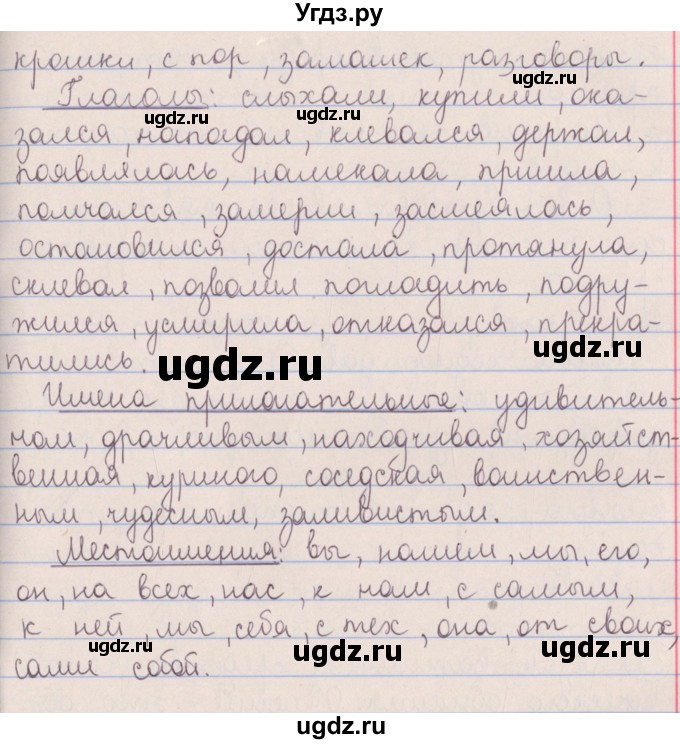 Угдз.ру
крошки, с пор, замашек, разговоры.
Глаголы: слыхали, купили, ока-
зался, нападал, клевался, держал,
появлялась, намекала, пришла,
помчался, замерли, засмеялась,
остановился, достала, протянула,
склевал, позволил погладить, подру-
жился, усмирила, отказался, прекра-
тились.
Имена прилагательные: удивитель-
ном, драчливым, находчивая, хозяйст-
венная, куриного, соседская, воинствен-
ным, чудесным, заливистым.
Местоимения: вы, нашем, мы, его,
он, на всех, нас, к нам, с самым,
к ней, мы, себя, с тех, она, от своих,
сами собой.
ugdz.ru
ugdz.ru
ugdz.ru
ugdz.ru
ugdz.ru
ugdz.ru
ugdz.ru
ugdz.ru
ugdz.ru
ugdz.ru
ugdz.ru
ugdz.ru
ugdz.ru